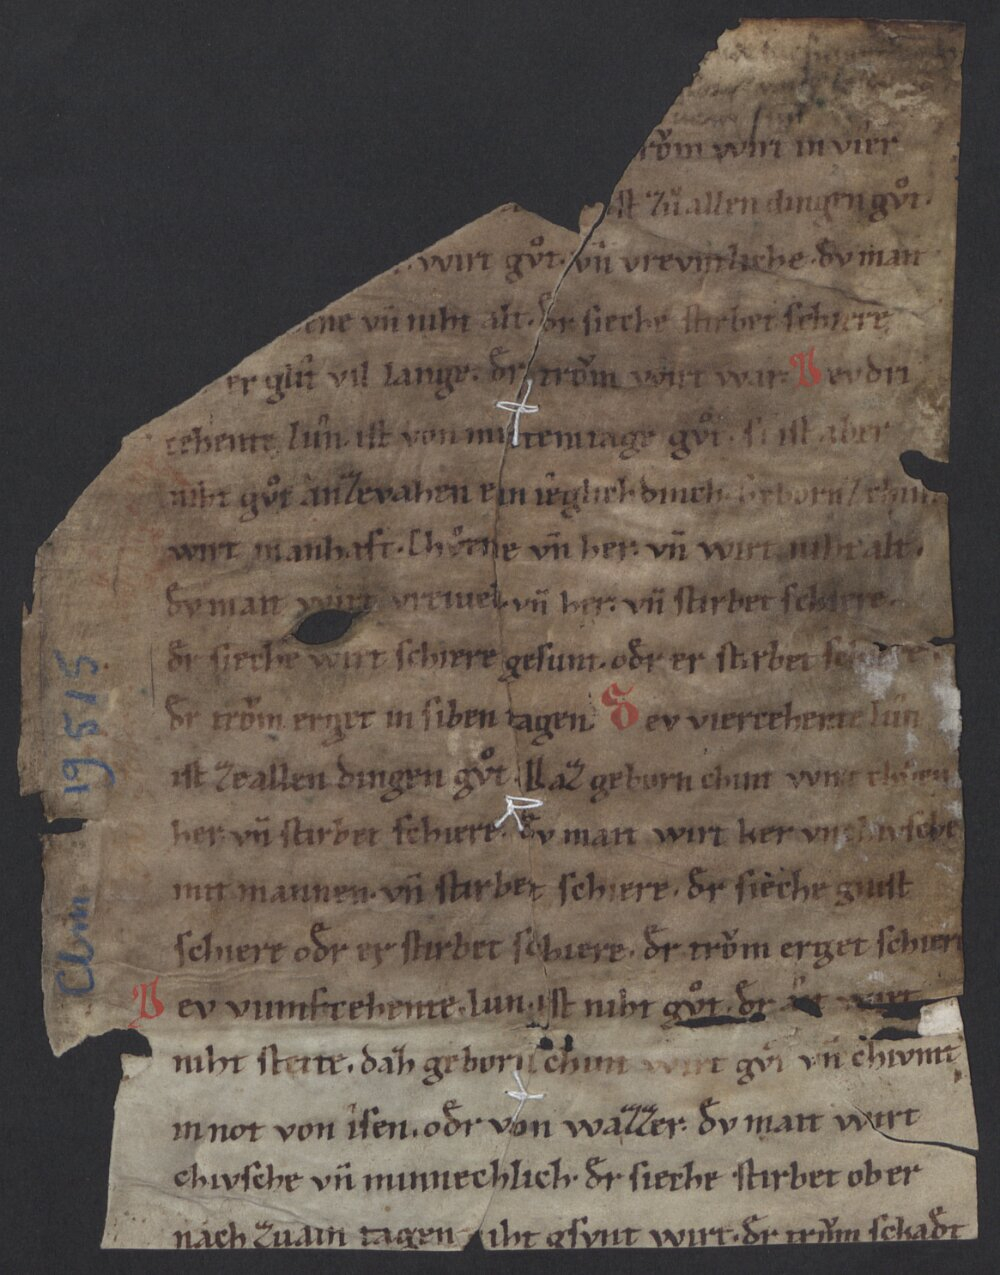 trǒm wirt in vier
ist zů allen dingen gvͦt.
wirt gvͦt. vn̄ vrevntliche. dv matt
vn̄ niht alt. dr̄ sieche stirbet schiere
er glit vil lange. dr̄ trǒm wirt war. Dev dri
cehente lûn. ist von mittemtage gvͦt. si ist aber
niht gvͦt an zevahen ein îeglich dinch. geborn chint
wirt manhaft. chv̊ene vn̄ her. vn̄ wirt niht alt.
dv matt wirt vrevuel. vn̄ her. vn̄ stirbet schiere.
dr̄ sieche wirt schiere gesunt. odr̄ er stirbet schiere
dr̄ trǒm erget in siben tagen. Dev viercehente lûn
ist ze allen dingen gvͦt. daz geborn chint wirt
her vn̄ stirbet schiere. dv matt wirt her
mit mannen. vn̄ stirbet schiere. dr̄ sieche gnist
schiere odr̄ er stirbet schiere. dr̄ trǒm erget schiere
Dev vumfcehente. lun. ist niht gvͦt. dr̄ wirt
niht stette. daz geborn chint wirt gvͦt vn̄ chvmt
in not von îsen. odr̄ von wazzer. dv matt wirt
chivsche vn̄ minnechlich. dr̄ sieche stirbet ob er
nach zuain tagen niht gsvnt wirt. dr̄ trǒm schadt
Clm 19515